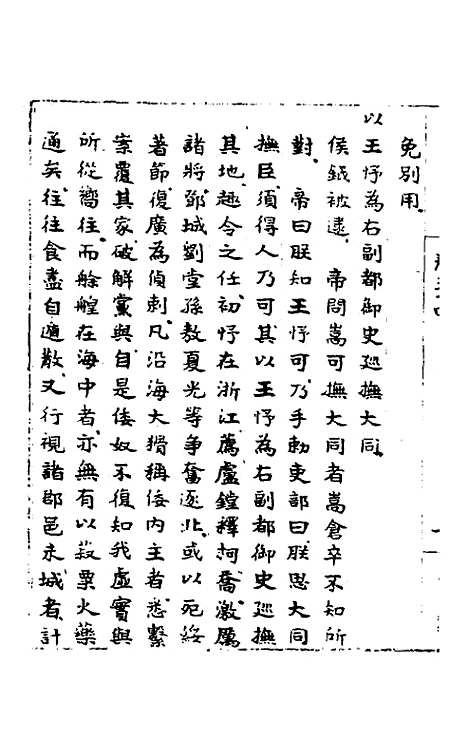 免別用
以王忬為右副都御史巡撫大同
侯鉞被逮帝問嵩可撫大同者嵩倉卒不知所
對帝曰朕知王忬可乃手勅吏部曰朕思大同
撫臣須得人乃可其以王忬為右副都御史巡撫
其地趣令之任初忬在浙江薦盧鏜釋柯喬激厲
諸將鄧城劉堂孫敖夏光等爭奮逐北或以死綏
著節復廣為偵刺凡沿海大猾稱倭內主者悉繫
案覆其家破解黨與自是倭奴不復知我虛實與
所從嚮往而艅艎在海中者亦無有以菽粟火藥
通矣往往食盡自遁散又行視諸郡邑未城者計